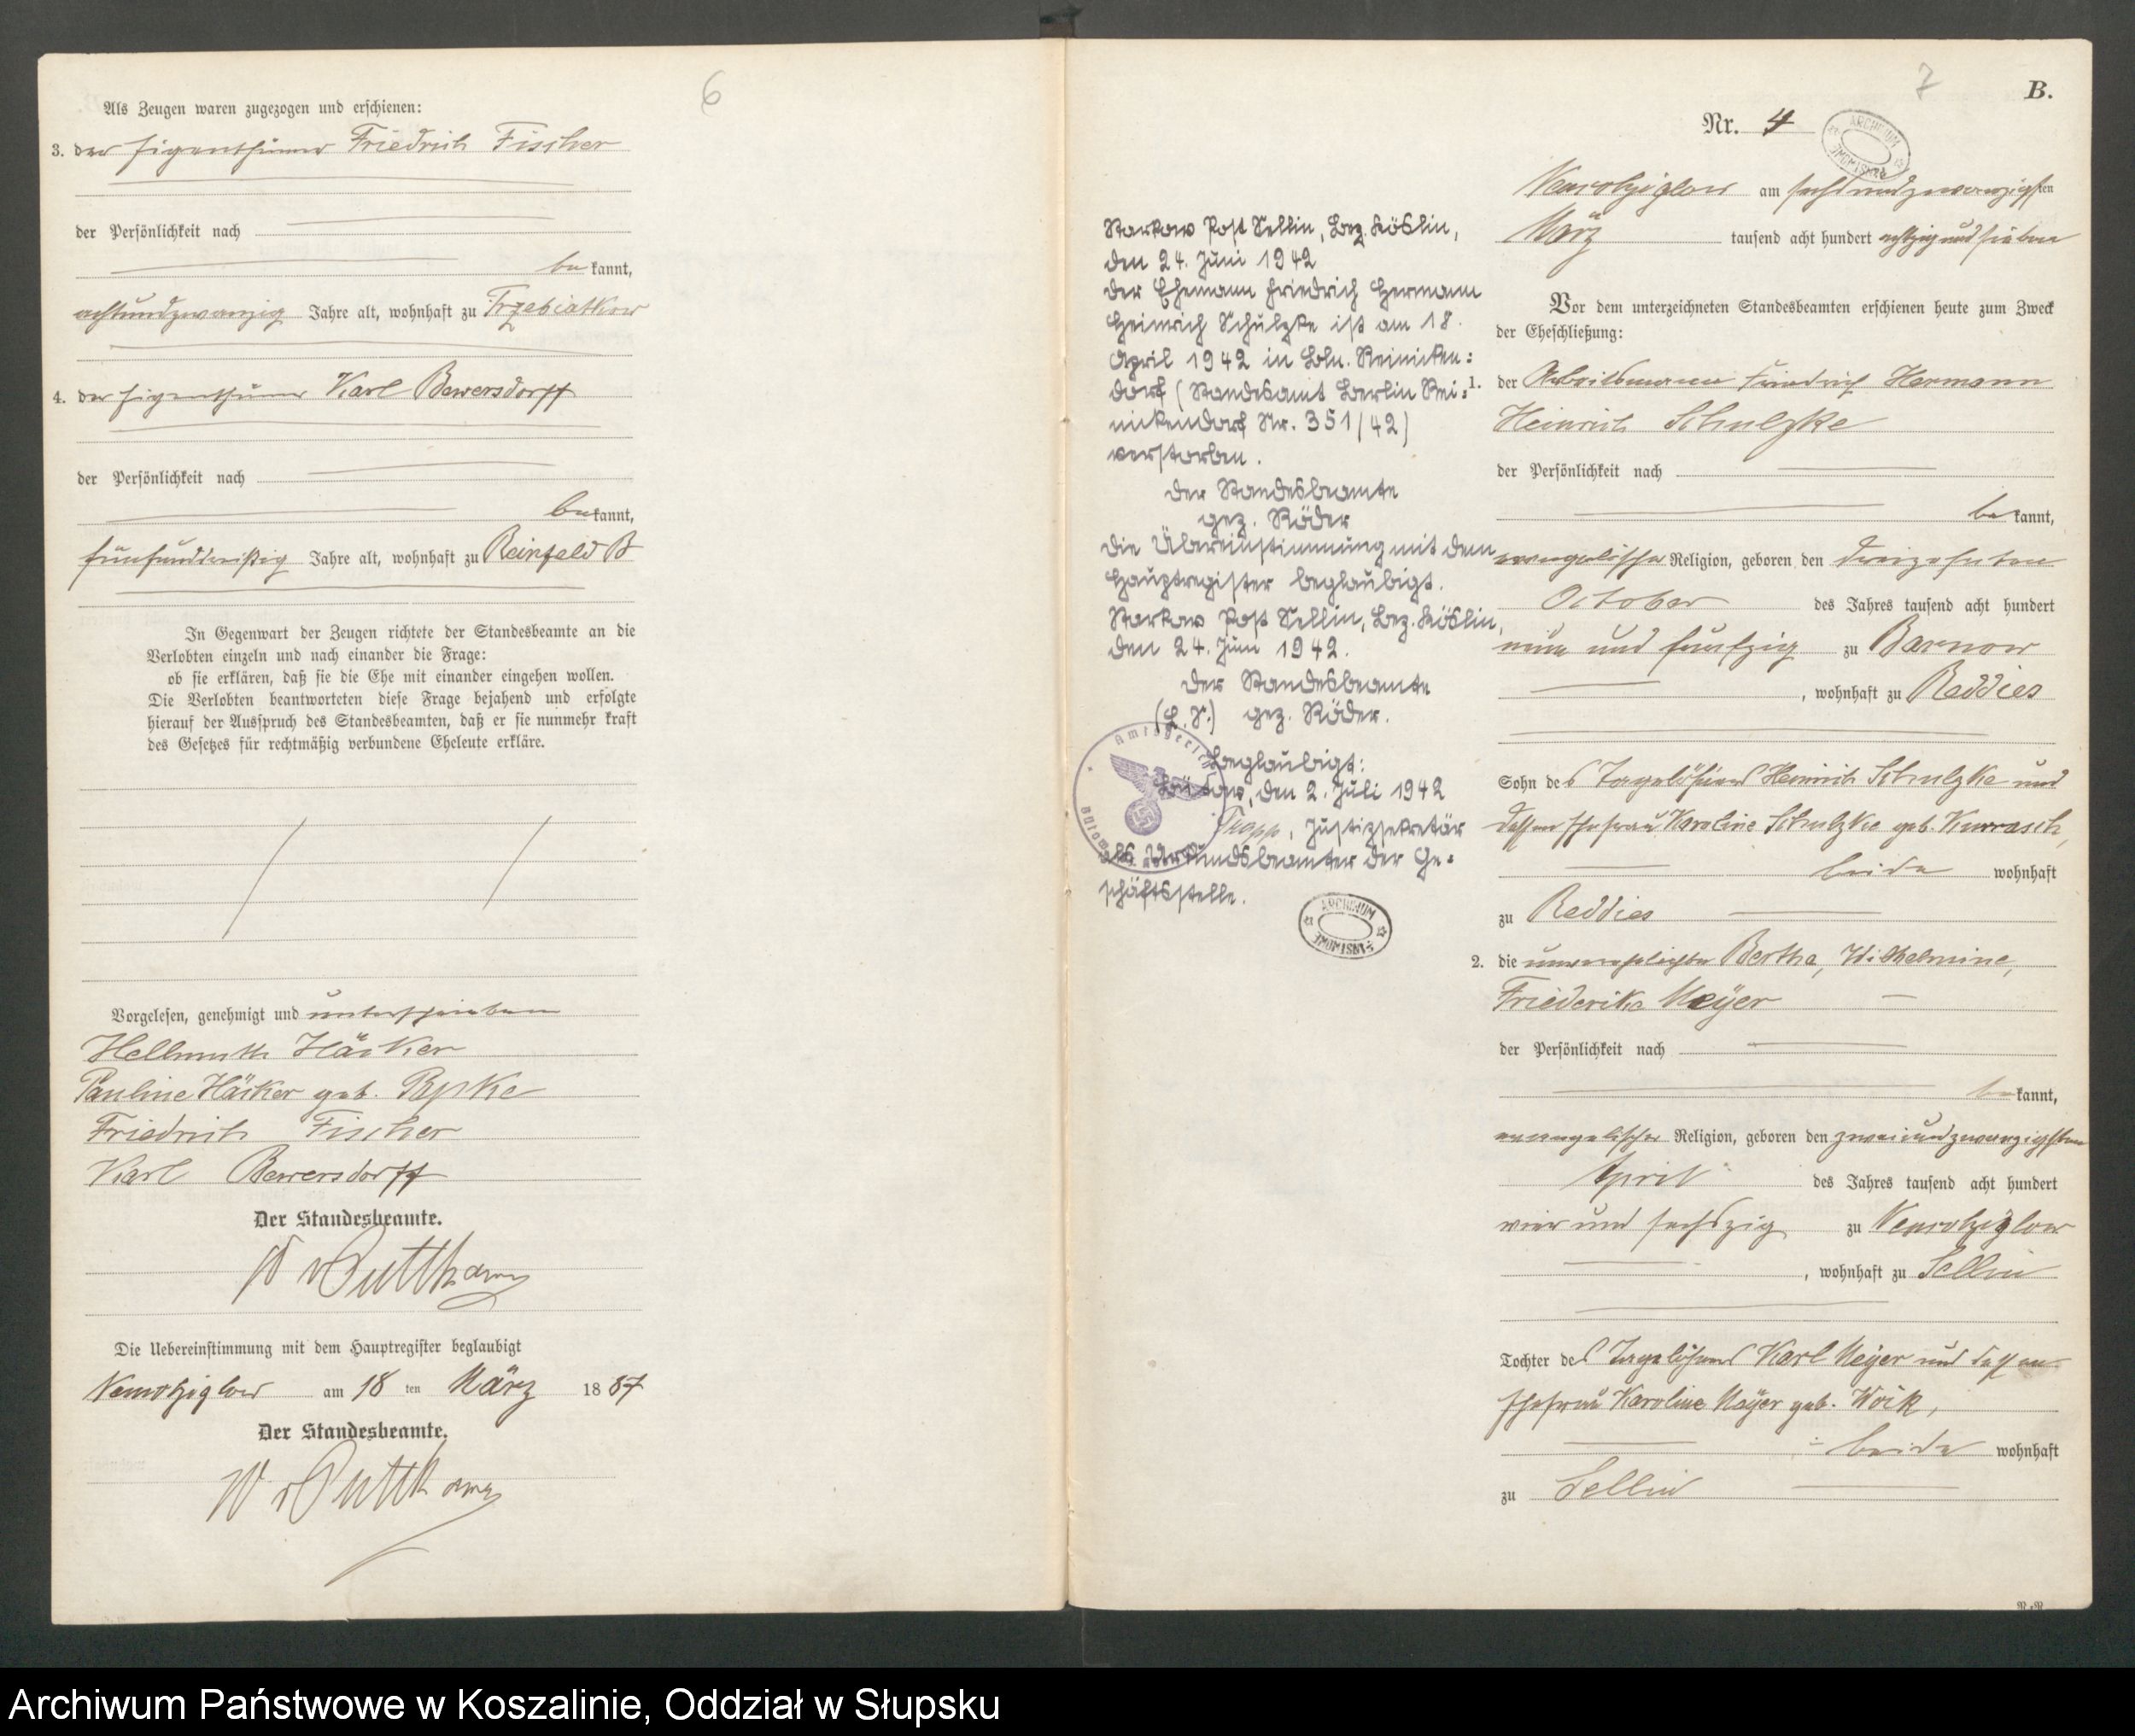 6
Als Zeugen waren zugezogen und erschienen:
3. der Eigenthümer Friedrich Fischer
der Persönlichkeit nach
be kannt,
achtundzwanzig Jahre alt, wohnhaft zu Trzebiatkow
4. der Eigenthümer Karl Bewersdorff
der Persönlichkeit nach
be kannt,
fünfunddreißig Jahre alt, wohnhaft zu Reinfeld B
In Gegenwart der Zeugen richtete der Standesbeamte an die
Verlobten einzeln und nach einander die Frage:
ob sie erklären, daß sie die Ehe mit einander eingehen wollen.
Die Verlobten beantworteten diese Frage bejahend und erfolgte
hierauf der Ausspruch des Standesbeamten, daß er sie nunmehr kraft
des Gesetzes für rechtmäßig verbundene Eheleute erkläre.
Vorgelesen, genehmigt und unterschrieben
Hellmuth Häcker
Pauline Häcker geb. Papke
Friedrich Fischer
Karl Bewersdorff
Der Standesbeamte.
W v Puttkamer
Die Uebereinstimmung mit dem Hauptregister beglaubigt
am 18 ten März 18 87
Der Standesbeamte.
W v Puttkamer
7
B.
Nr. 4
ARCHIWUM PAŃSTWOWE
am sechsundzwanzigsten
März tausend acht hundert achtzig und sieben
Vor dem unterzeichneten Standesbeamten erschienen heute zum Zweck
der Eheschließung:
1. der Arbeitsmann Friedrich Hermann
Heinrich Schulzke
der Persönlichkeit nach
be kannt,
evangelischer Religion, geboren den dreizehnten
October des Jahres tausend acht hundert
neun und fünfzig zu Barnow
, wohnhaft zu Reddies
Sohn des Tagelöhners Heinrich Schulzke und
dessen Ehefrau Karoline Schulzke geb. Kurrasch,
beide wohnhaft
zu Reddies
2. die unverehelichte Bertha, Wilhelmine,
Friederike Meÿer
der Persönlichkeit nach
be kannt,
evangelischer Religion, geboren den zweiundzwanzigsten
April des Jahres tausend acht hundert
vier und sechszig zu
, wohnhaft zu Sellin
Tochter des Tagelöhners Karl Meÿer und dessen
Ehefrau Karoline Meÿer geb. Woik,
beide wohnhaft
zu Sellin
Starkow Post Sellin, Bez. Köslin,
den 24. Juni 1942
Der Ehemann Friedrich Hermann
Heinrich Schulzke ist am 18.
April 1942 in Bln. Reinicken:
dorf (Standesamt Berlin Rei:
nickendorf Nr. 351/42)
verstorben.
Der Standesbeamte
gez. Röder
Die Übereinstimmung mit dem
Hauptregister beglaubigt.
Starkow Post Sellin, Bez. Köslin,
den 24. Juni 1942.
Der Standesbeamte
(L.S.) gez. Röder.
Amtsgericht Bütow
Beglaubigt:
Bütow, den 2. Juli 1942
, Justizsekretär
als Urkundsbeamter der Ge=
schäftsstelle.
ARCHIWUM PAŃSTWOWE
Archiwum Państwowe w Koszalinie, Oddział w Słupsku